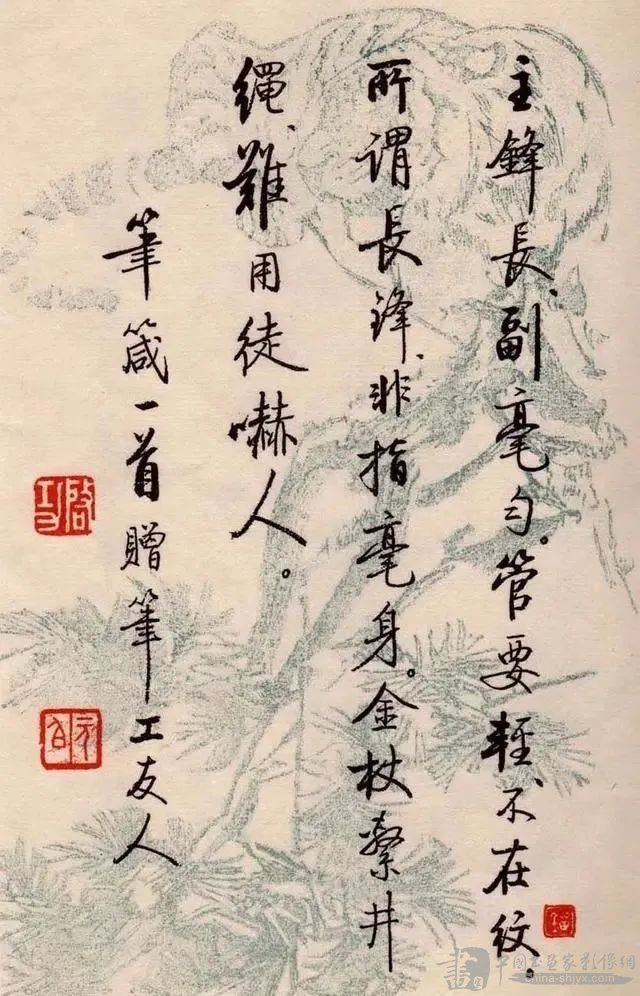 主鋒長、副毫勻。管要輕、不在紋。
所謂長鋒、非指毫身。金杖繫井
繩、難用徒嚇人。
筆箴一首贈筆工友人
啓功
元白
中国书画家影像網
china-shjyx.com